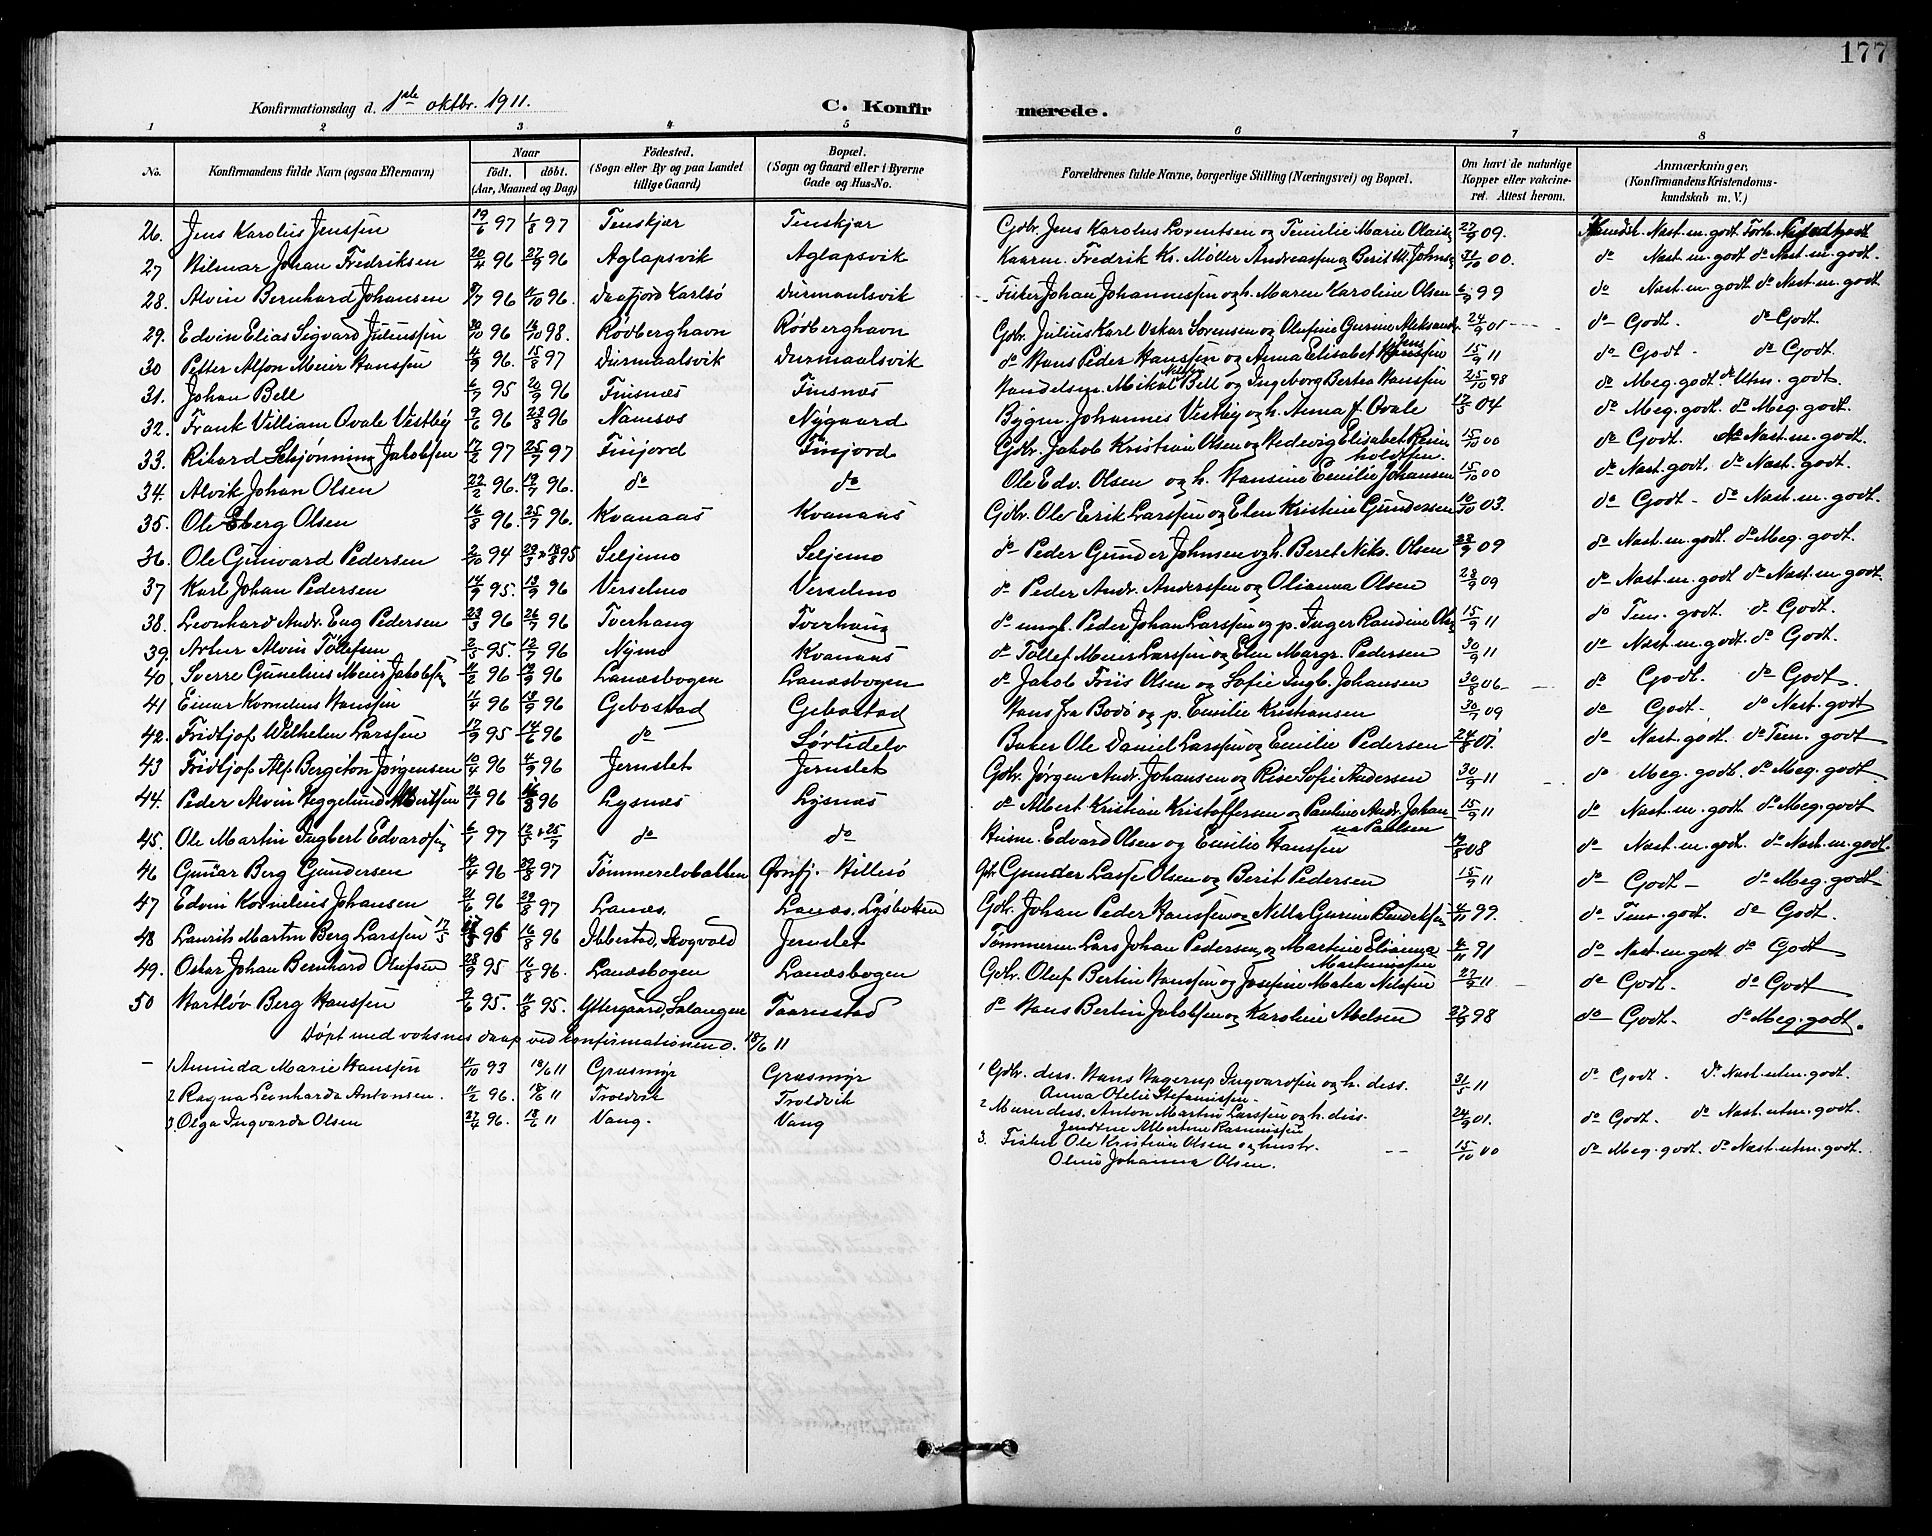 177
Konfirmationsdag d. 1ste oktbr. 1911.
C. Konfirmerede.
1 2 3 4 5 6 7 8
No. Konfirmandens fulde Navn (ogsaa Efternavn) Naar født. døbt. (Aar, Maaned og Dag) Fødested. (Sogn eller By og paa Landet tillige Gaard) Bopæl. (Sogn og Gaard eller i Byerne Gade og Hus-No. Forældrenes fulde Navne, borgerlige Stilling (Næringsvei) og Bopæl. Om havt de naturlige Kopper eller vakcineret. Attest herom. Anmærkninger, (Konfirmandens Kristendomskundskab m. V.)
26. Jens Karolius Jenssen 19/6 97 1/8 97 Tenskjær Tenskjær Gdbr. Jens Karolus Lorentsen og Temilie Marie 27/9 09. Kundsk. Nast. m. godt Forh.
27 Hilmar Johan Fredriksen 20/4 96 27/9 96 Aglapsvik Aglapsvik Kaarm. Fredrik Kr. Møller Andreassen og Berit M. Johns 31/10 00. do Nast. m. godt do Nast. m. godt.
28. Alvin Bernhard Johansen 8/7 96 11/10 96. Daafjord Karlsö Durmaalsvik Fisker Johan Johannessen og h. Maren Karoline Olsen 6/9 99 do Nast. m. godt do Nast. m. godt
29. Edvin Elias Sigvard Juliussen 30/10 96 16/10 98. Rödberghavn Rödberghavn Gdbr. Julius Karl Oskar Sörensen og Olufine Gurine Aleksand. 24/9 01 do Godt. do Godt.
30 Petter Alfon Meier Hanssen 4/9 96. 15/8 97 Durmaalsvik Durmaalsvik do Hans Peder Hanssen og Anna Elisabet Jens 15/9 11 do Godt. do Godt.
31. Johan Bell 6/7 95 20/9 96 Finsnæs Finsnæs Handelsm. Mikal Nilsen Bell og Ingeborg Bertea Hanssen 25/10 98 do Meg. godt. do Utm. godt.
32. Frank Villiam Ovale Vestby 9/6 96 23/8 96 Namsos Nygaard Bygm. Johannes Vestby og h. Anna f. Ovale 17/5 04 do Meg. godt. do Meg. godt.
33. Rikard Schjønning Jakobsen 17/2 97 25/7 97 Finfjord Finfjord Gdbr. Jakob Kristian Olsen og Hedevig Elisabet Reinholdsen 15/10 00 do Godt. do Nast. m. godt.
34. Alvik Johan Olsen 22/2 96. 19/7 96. do do Ole Edv. Olsen og h. Hansine Emilie Johansen 15/10 00 do Nast. godt. do Nast. m. godt.
35. Ole Eberg Olsen 16/3 96. 25/7 96. Kvanaas Kvanaas Gdbr. Ole Eerik Larssen og Elen Kristine Gundersen 10/10 03. do Godt - do Nast. m. godt.
36. Ole Gunvard Pedersen 2/10 94 Seljemo Seljemo do Peder Gunder Johnsen og h. Beret Niks. Olsen 23/9 09 do Nast. m. godt. do Meg. godt.
37 Karl Johan Pedersen 14/9 95. 13/9 96 Verselmo Verselmo do Peder Andr. Anderssen og Olianna Olsen 28/9 09 do Nast. m. godt do Nast. m. godt.
38. Leonhard Andr. Eug Pedersen 23/3 96 26/7 96 Tverhaug Tverhaug do ungk. Peder Johan Larssen og p. Inger Randine Ols 15/9 11 do Tem. godt. do Godt.
39. Artur Alvin Tollefsen 2/5 95. 12/7 96 Nymo Kvanaas do Tollef Meier Larssen og Elen Margr. Pedersen 30/9 11 do Nast. m. godt. do Godt.
40. Sverre Gunelius Meier Jakobsen 11/2 96 13/9 96 Lanesbogen Lanesbogen do Jakob Friis Olsen og Sofie Ingb. Johansen 30/8 06 do Godt. do Godt.
41 Einar Kornelius Hanssen 11/4 96 13/9 96 Gebostad Gebostad Hans fra Bodö og p. Emilie Kristiansen 30/7 09 do Godt. do Nast. godt
42. Fridtjof Wilhelm Larssen 17/9 95 14/6 96 do Sörlidelv Baker Ole Daniel Larssen og Emilie Pedersen 24/8 01. do Nast. godt. do Tem. godt
43 Fridtjof Alf Bergiton Jörgensen 10/4 96 4/9 96 Jernslet Jernslet Gdbr. Jörgen Andr. Johansen og Rise Sofie Andersen 30/9 11 do Meg. godt. do Meg. godt.
44. Peder Alvin Heggelund Albertsen 26/1 96 16/8 96 Lysnæs Lysnæs do Albert Kristian Kristoffersen og Pauline Andr. Johanna Paulsen 15/9 11 do Nast. m. godt do Meg. godt
45. Ole Martin Ingbert Edvardsen 6/1 97 do do Husm. Edvard Olsen og Emilie Hanssen 17/8 08 do Nast. m. godt. do Nast. m. godt.
46 Gunnar Berg Gundersen 17/4 96 22/8 97 Tömmerelvbakken Örnfj. Hillesö Gdbr Gunder Lasse Olsen og Berit Pedersen 15/9 11 do Godt - do Meg. godt
47 Edvin Kornelius Johansen 21/6 96 29/8 97 Lanes. Lanes. Lysbotten Gdbr. Johan Peder Hanssen og Nella Gurine Bendiksen 4/11 99. do Tem. godt. do Godt.
48 Laurits Martin Berg Larssen 17/5 96 16/8 96 Ibbestad, Skogvold Jernslet Tömmerm Lars Johan Pedersen og Martine Elianna Martinussen 4/11 91 do Nast. m. godt do Godt
49. Oskar Johan Bernhard Olufsen 28/9 95 16/8 96. Lanesbogen Lanesbogen Gdbr. Oluf Bertin Hanssen og Josefine Matea Nilssen 27/9 11 do Godt. do Godt
50 Hartlöv Berg Hanssen 9/6 95. 11/8 95. Yttergaard, Salangen Taarnstad do Hans Bertin Jakobsen og Karoline Abelsen 27/9 98 do Godt. do Meg. godt.
Döpt med voksnes daap ved konfirmationen d. 18/6 11
1 Amunda Marie Hanssen 11/10 93 18/6 11 Græsmyr Græsmyr 1 Gdbr. diss. Hans Hagerup Ingvardsen og h. diss. Anna Otelie Stefanussen 31/5 11 do Godt. do Nast. utm. godt.
2 Ragna Leonharda Antonsen. 11/2 96. 18/6 11 Troldvik Troldvik 2 Murer diss. Anton Martin Larssen og h. diss. Jentine Albertine Rasmussen 24/9 01. do Godt. do Nast. utm. godt.
3. Olga Ingvarda Olsen 27/4 96. 18/6 11 Vang. Vang 3. Fisker Ole Kristian Olsen og hustr. Oline Johanna Olsen. 15/10 00 do Meg. godt. do Nast. utm. godt.